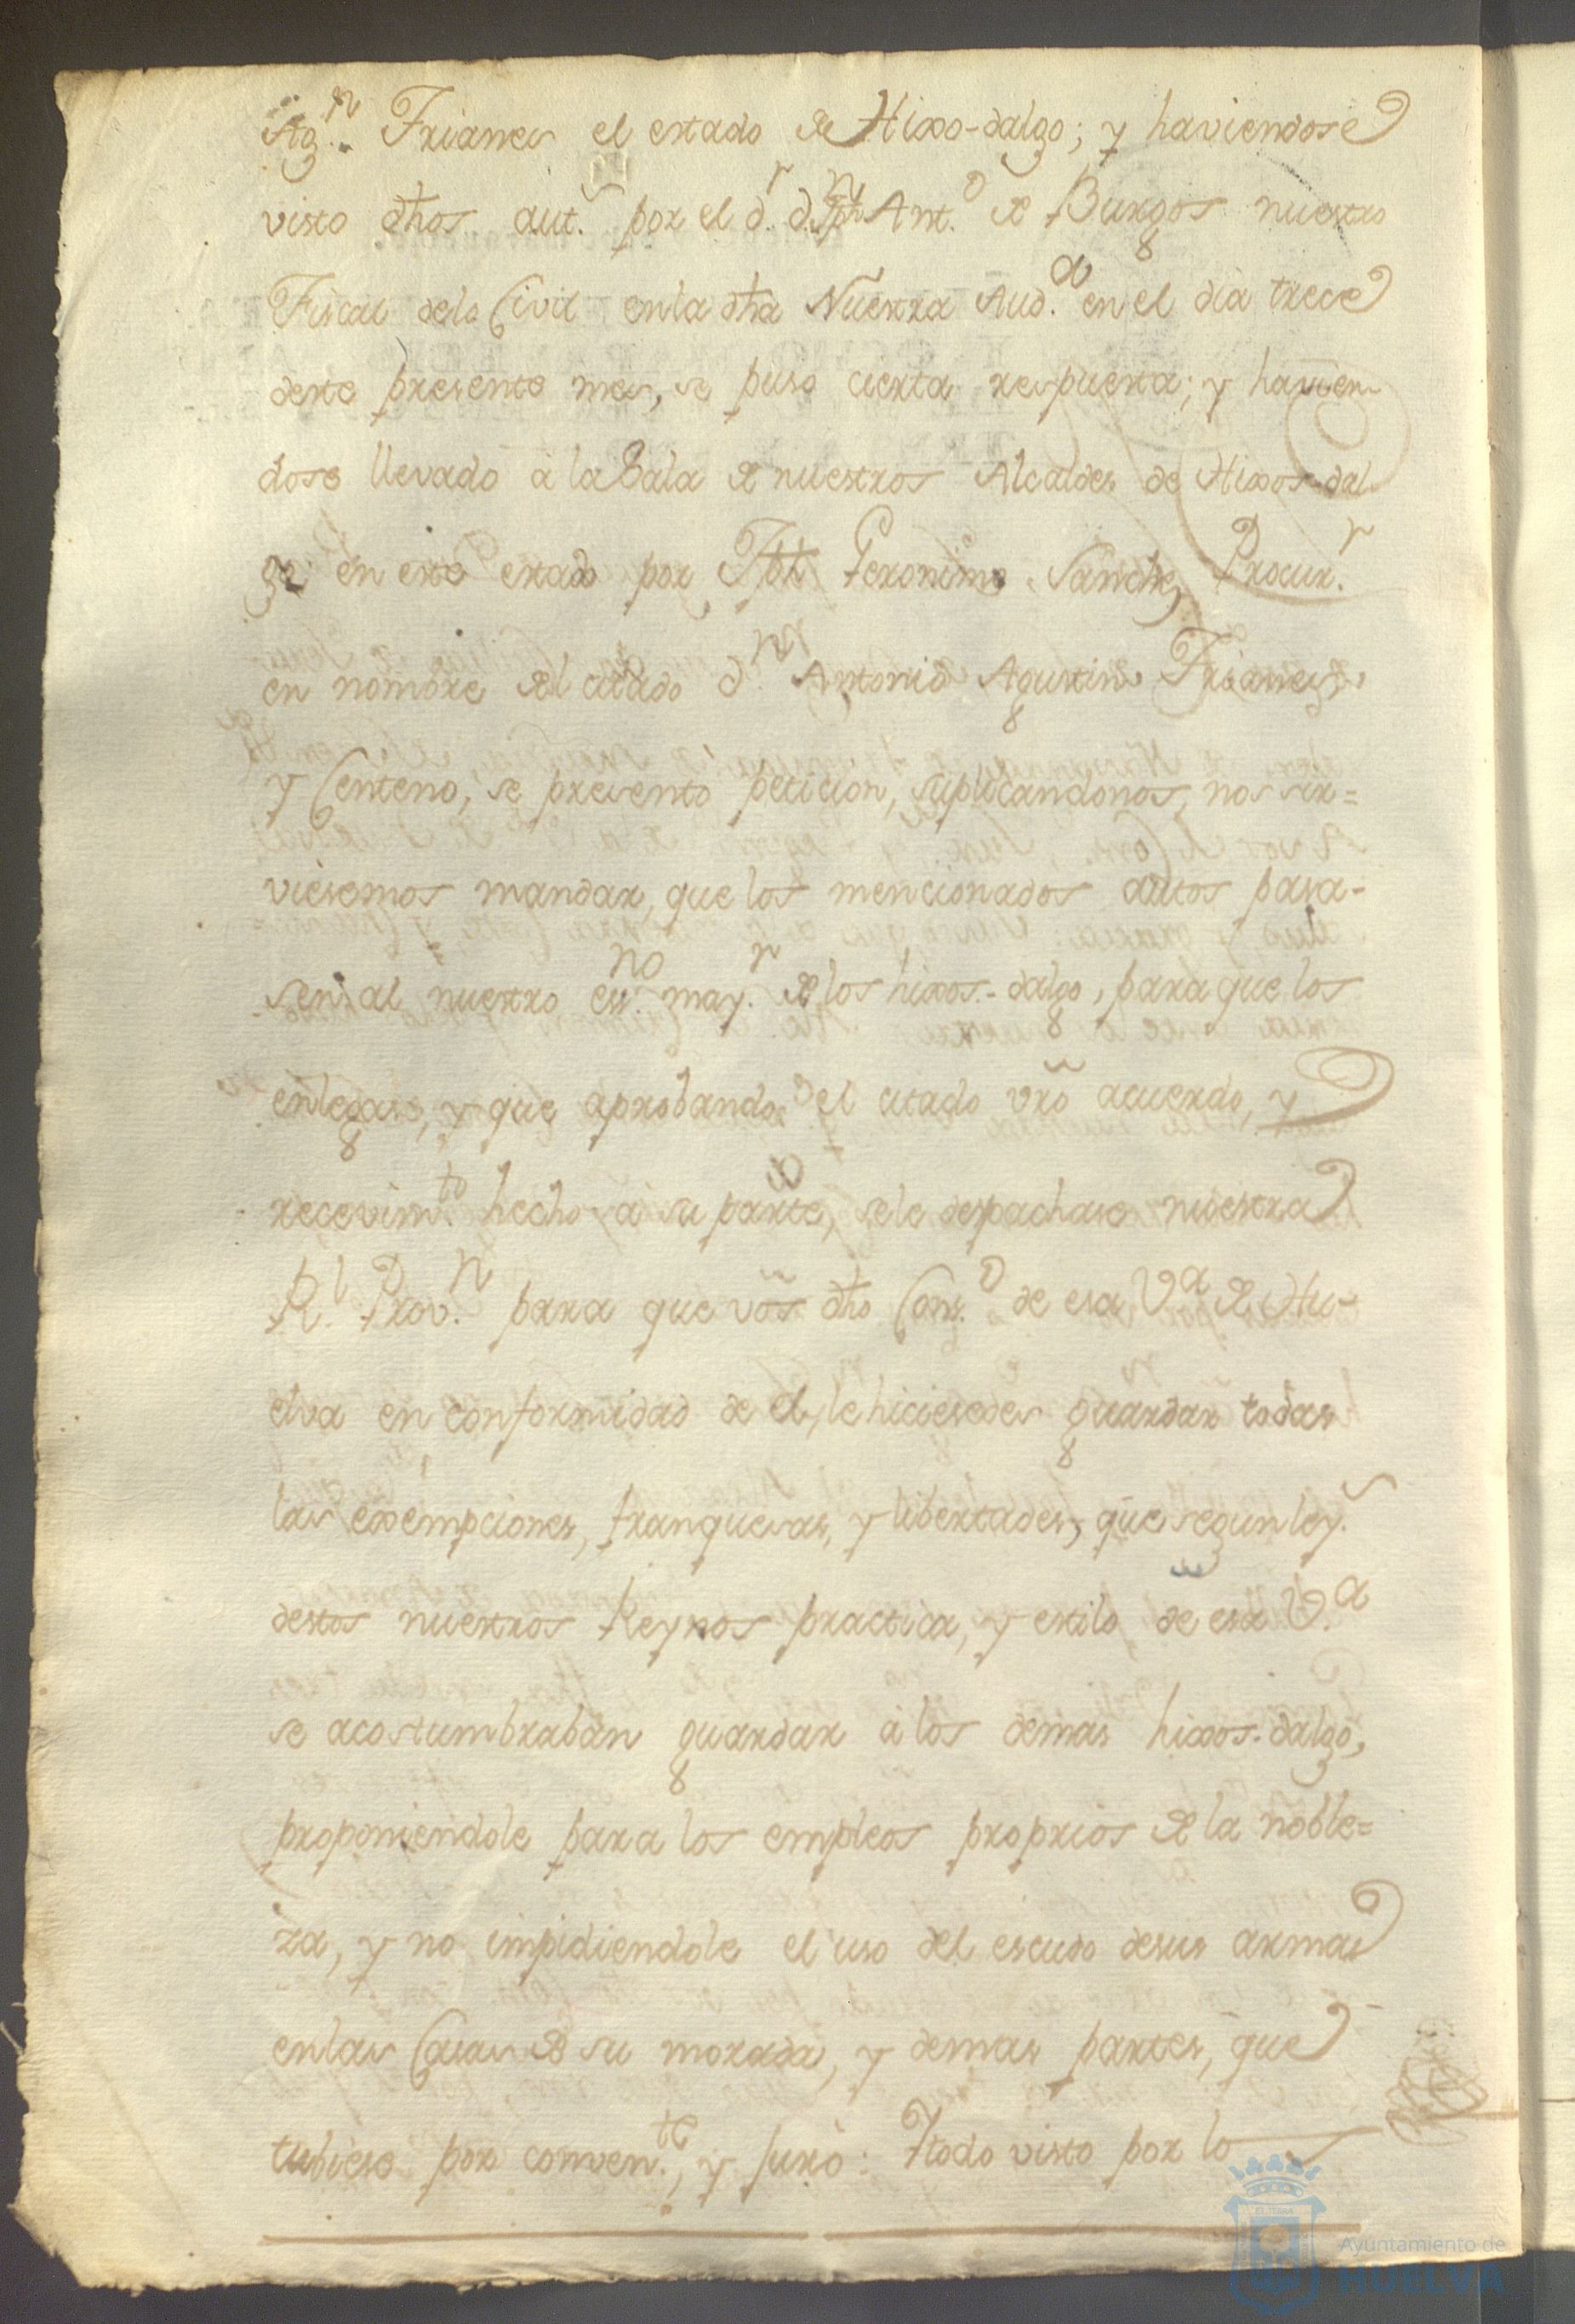 Ag.n Trianes el estado de Hixo-dalgo; y haviendose
visto dhos aut.s por el d.r d.n Jph Ant.o de Burgos nuestro
Fiscal delo Civil enla dha Nuestra Aud.a en el dia trece
deste presente mes, se puso cierta respuesta; y havien
dose llevado à la Sala de nuestros Alcaldes de Hixos-dal
go en este estado por Jph Geronimo Sanchez Procur.r
en nombre del citado d.n Antonio Agustin Trianes,
y Centeno, se presentò peticion, suplicandonos, nos sir=
viesemos mandar, que los mencionados autos pasa-
sen al nuestro ess.no may.r de los hixos-dalgo, para que los
enlegase, y que aprobando el citado vrõ acuerdo, y
recevim.to hecho à su parte, sele despachase nuestra
R.l Prov.n para que võs dho Conz.o de esa V.a de Hu-
elva en conformidad de el, le hiciesedes guardar todas
las exempciones, franquesas, y libertades, que segun ley.s
destos nuestros Reynos practica, y estilo de esa V.a
se acostumbraban guardar à los demas hixos-dalgo,
proponiendole para los empleos proprios de la noble=
za, y no impidiendole el uso del escudo desus armas
enlas Casas de su morada, y demas partes, que
tubiese por conven.te, y jurò: Ytodo visto por los
Ayuntamiento de
HUELVA